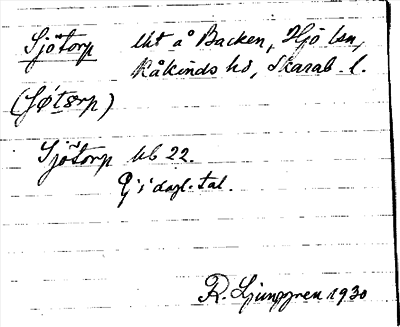 Sjötorp lht å Backen, Hjo lsn,
Kåkinds hd, Skarab. l.
(ʃøtɔrp)
Sjötorp Ub 22.
Ej i dagl. tal.
R. Ljunggren 1930